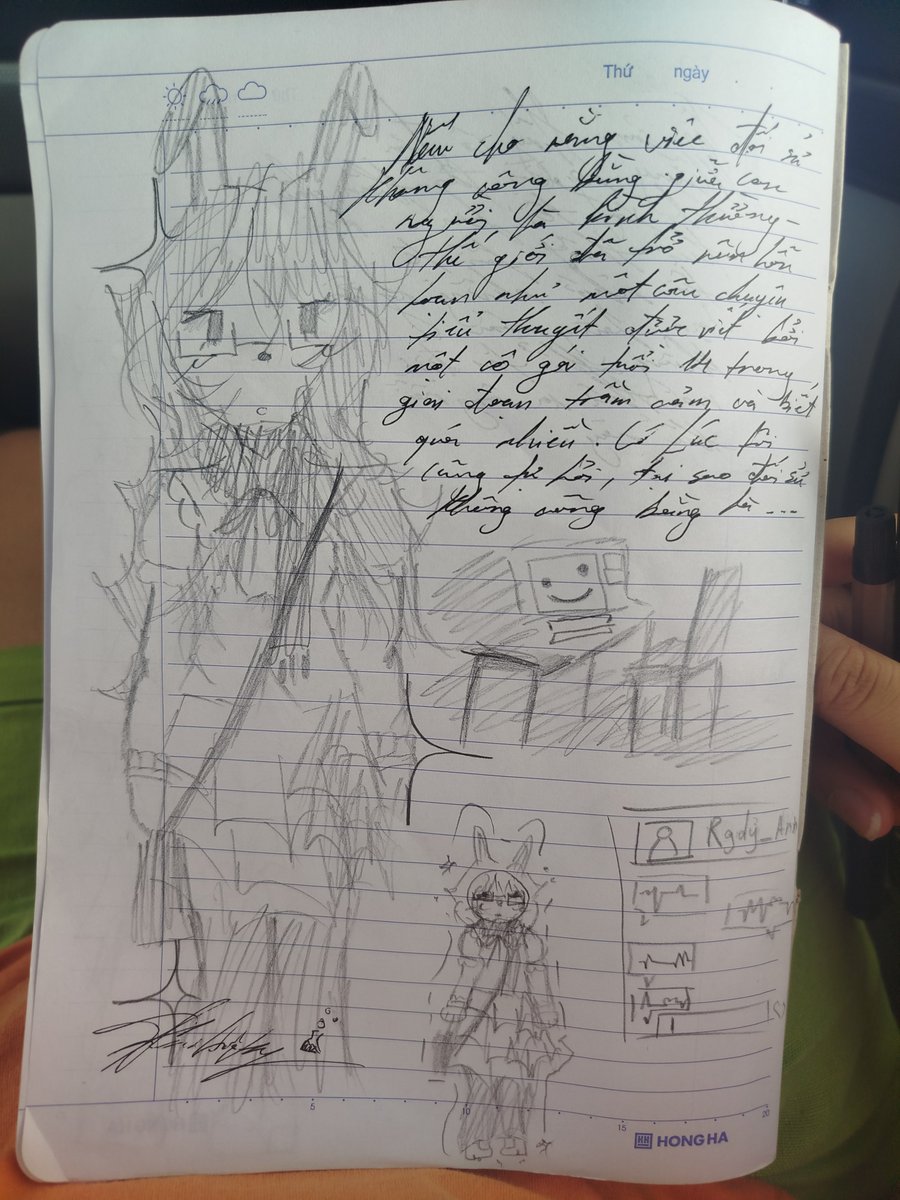 Thứ ngày
Nếu cho rằng việc đối sử
không công bằng giữa con
người là bình thường -
thế giới đã trở nên hỗn
loạn như một câu chuyện
tiểu thuyết được viết bởi
một cô gái tuổi 14 trong
giai đoạn trầm cảm và biết
quá nhiều. Có lúc tôi
cũng tự hỏi, tại sao đối sử
không công bằng là ...
Rgdy_Anh
5
10
15
20
HH HONG HA